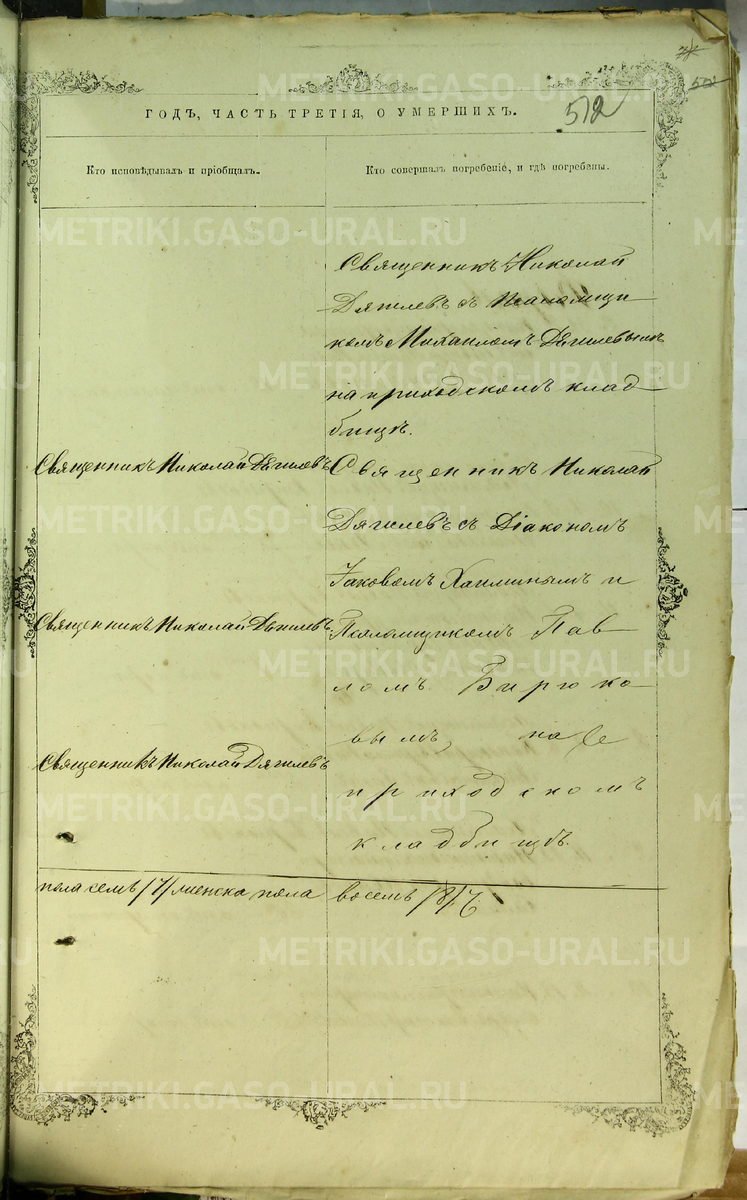 512
52
ГОДЪ, ЧАСТЬ ТРЕТІЯ, О УМЕРШИХЪ.
Кто исповѣдывалъ и пріобщалъ.
Кто совершалъ погребеніе, и гдѣ погребены.
Священникъ Николай
Дягилевъ съ Псаломщи
комъ Михаиломъ Дягилевымъ
на приходскомъ клад
бищѣ.
Священникъ Николай Дягилевъ
Священникъ Николай
Дягилевъ съ Діакономъ
Іаковомъ и
Священникъ Николай Дягилевъ
Псаломщикомъ Пав
ломъ Бирюко
вымъ, на
Священникъ Николай Дягилевъ
приходскомъ
кладбищѣ.
пола семь /7/ женска пола восемь /8/
METRIKI.GASO-URAL.RU